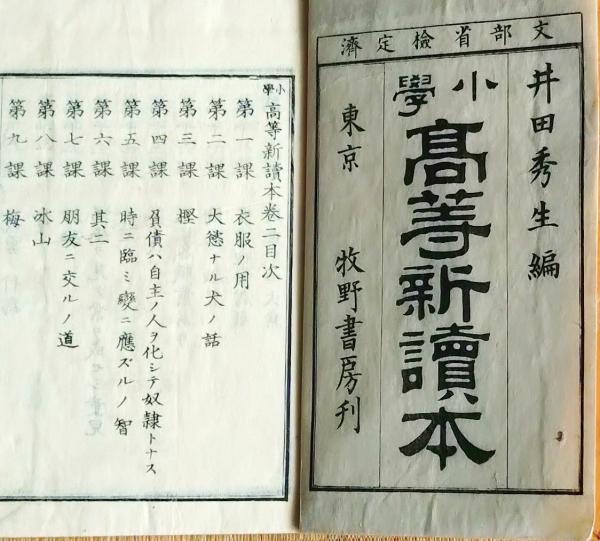 文部省檢定濟
井田秀生編
小學
高等新讀本
東京 牧野書房刊
小學高等新讀本卷二目次
第一課 衣服ノ用
第二課 大慾ナル犬ノ話
第三課 樫
第四課 負債ハ自主ノ人ヲ化シテ奴隷トナス
第五課 時ニ臨ミ變ニ應ズルノ智
第六課 其二
第七課 朋友ニ交ルノ道
第八課 氷山
第九課 梅